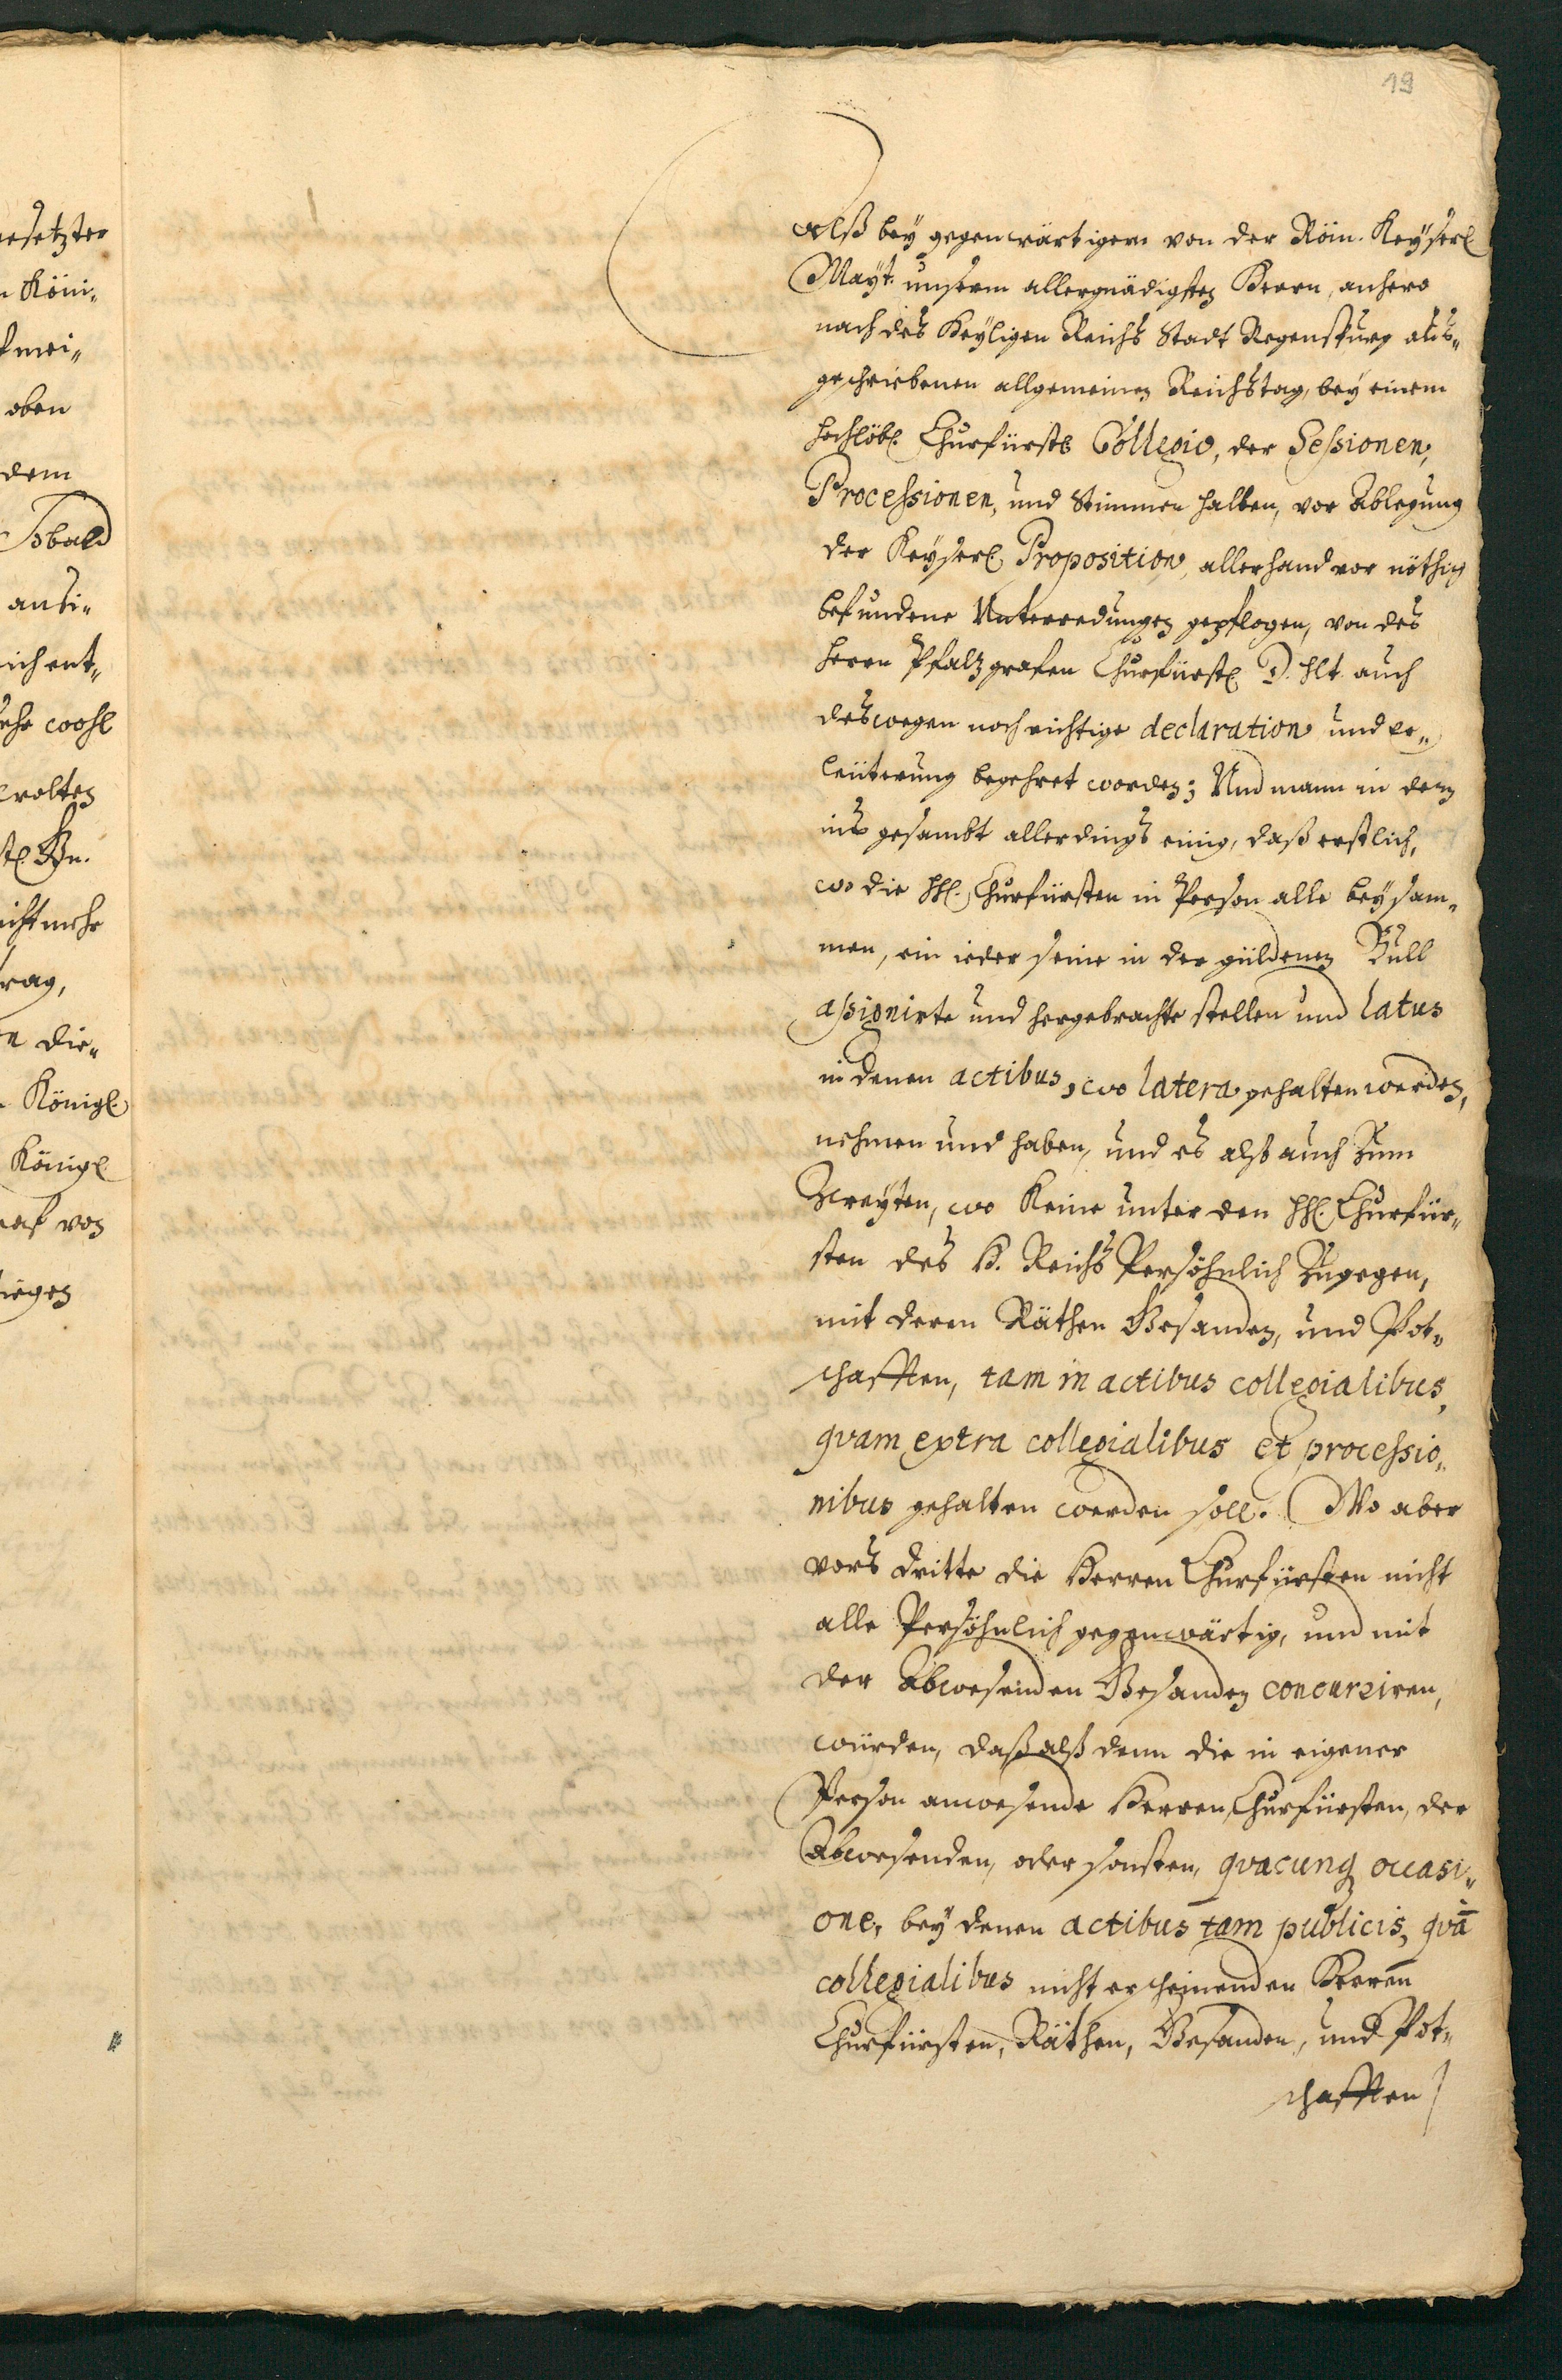 19
esetzter
n Köni„
oben
dem
Sobald
ansi„
ich ent„
wohl
wolten
nicht mehr
trag,
n die„
Königl.
Königl
von
Alß bey gegenwärtigem von der Röm. Keyserl
Mayt. unserm allergnädigsten Herrn, anhero
nach des Heyligen Reichs Stadt Regenspurg aus„
geschriebenen allgemeinen Reichstag, bey einem
hochlöbl. Churfürstl Collegio, der Sessionen,
Processionen, und Stimmen halben, vor Ablegung
der Keyserl. Proposition, allerhand vor nöthig
befundene Unterredungen gepflogen, von des
Herrn Pfaltzgrafen Churfürstl. D. hlt. auch
deswegen noch richtige declaration und er„
leüterung begehret worden; Und mann in dem
ins gesambt allerdings einig, daß erstlich,
wo die HH. Churfürsten in Person alle beysam„
men, ein ieder seine in der güldenen Bull
assignirte und hergebrachte stellen und latus
in denen actibus, wo latera gehalten werden,
nehmen und haben, und es alß auch Zum
Zweyten, wo Keine unter den HH. Churfür„
sten des H. Reichs Persöhnlich Zugegen,
mit deren Räthen Gesanden, und Pot„
schafften, tam in actibus collegialibus,
qvam extra collegialibus et processio„
nibus gehalten werden soll. Wo aber
vors dritte die Herren Churfürsten nicht
alle Persöhnlich gegenwärtig, und mit
der Abwesenden Gesanden concurriren,
würden, daß alß denn die in eigener
Person anwesende Herren Churfürsten, der
Abwesenden, oder sonsten, qvacunq occasi„
one, bey denen actibus tam publicis, qvā
collegialibus nicht erscheinenden Herren
Churfürsten, Räthen, Gesanden, und Pot„
schafften